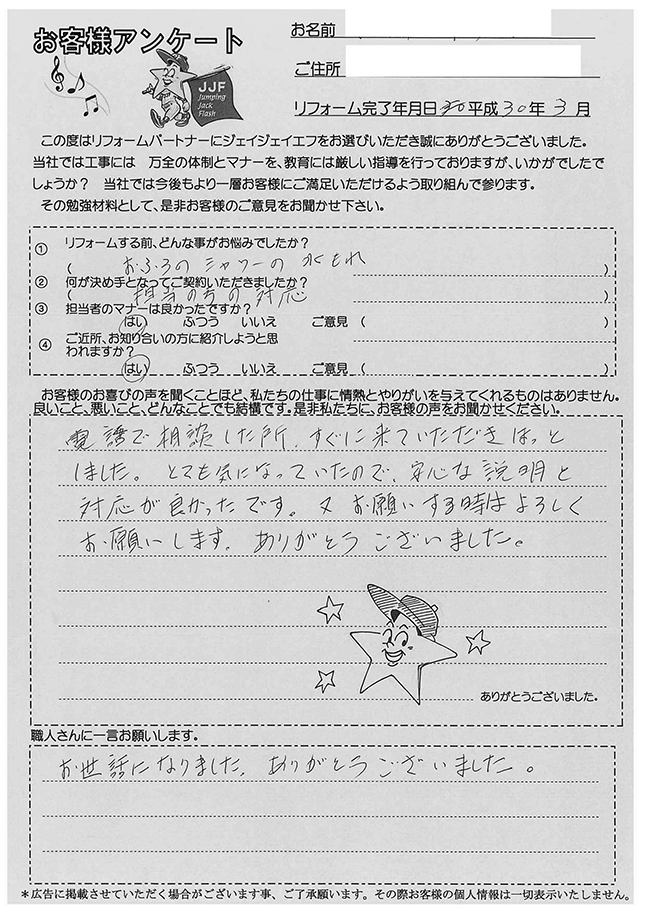 お客様アンケート
JJF
Jumping
Jack
Flash
お名前
ご住所
リフォーム完了年月日 平成30年3月
この度はリフォームパートナーにジェイジェイエフをお選びいただき誠にありがとうございました。
当社では工事には 万全の体制とマナーを、教育には厳しい指導を行っておりますが、いかがでしたで
しょうか? 当社では今後もより一層お客様にご満足いただけるよう取り組んで参ります。
その勉強材料として、是非お客様のご意見をお聞かせ下さい。
① リフォームする前、どんな事がお悩みでしたか?
( おふろのシャワーの水もれ )
② 何が決め手となってご契約いただきましたか?
( 担当の方の対応 )
③ 担当者のマナーは良かったですか?
はい ふつう いいえ ご意見 ( )
④ ご近所、お知り合いの方に紹介しようと思
われますか?
はい ふつう いいえ ご意見 ( )
お客様のお喜びの声を聞くことほど、私たちの仕事に情熱とやりがいを与えてくれるものはありません。
良いこと、悪いこと、どんなことでも結構です。是非私たちに、お客様の声をお聞かせください。
電話で相談した所、すぐに来ていただきほっと
しました。とても気になっていたので、安心な説明と
対応が良かったです。又お願いする時はよろしく
お願いします。ありがとうございました。
ありがとうございました。
職人さんに一言お願いします。
お世話になりました。ありがとうございました。
*広告に掲載させていただく場合がございます事、ご了承願います。その際お客様の個人情報は一切表示いたしません。